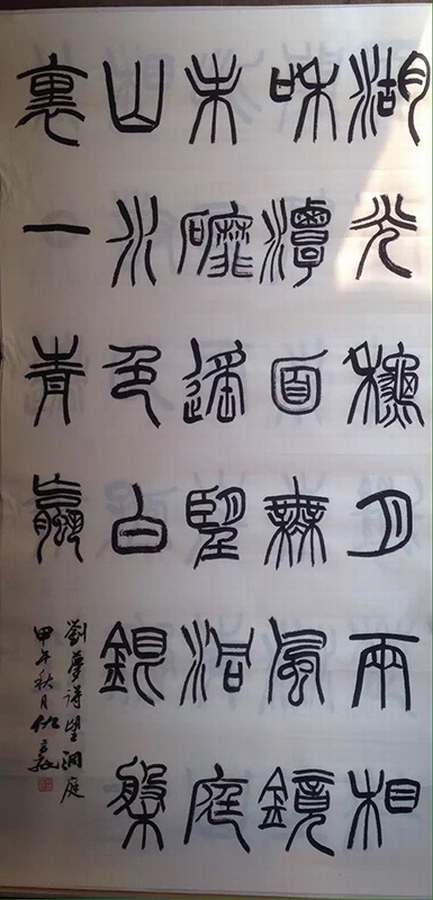 湖光秋月兩相
咊潭面無風鏡
未磨遙望洞庭
山水色白銀槃
裏一青蠃
劉夢得望洞庭
甲午秋月